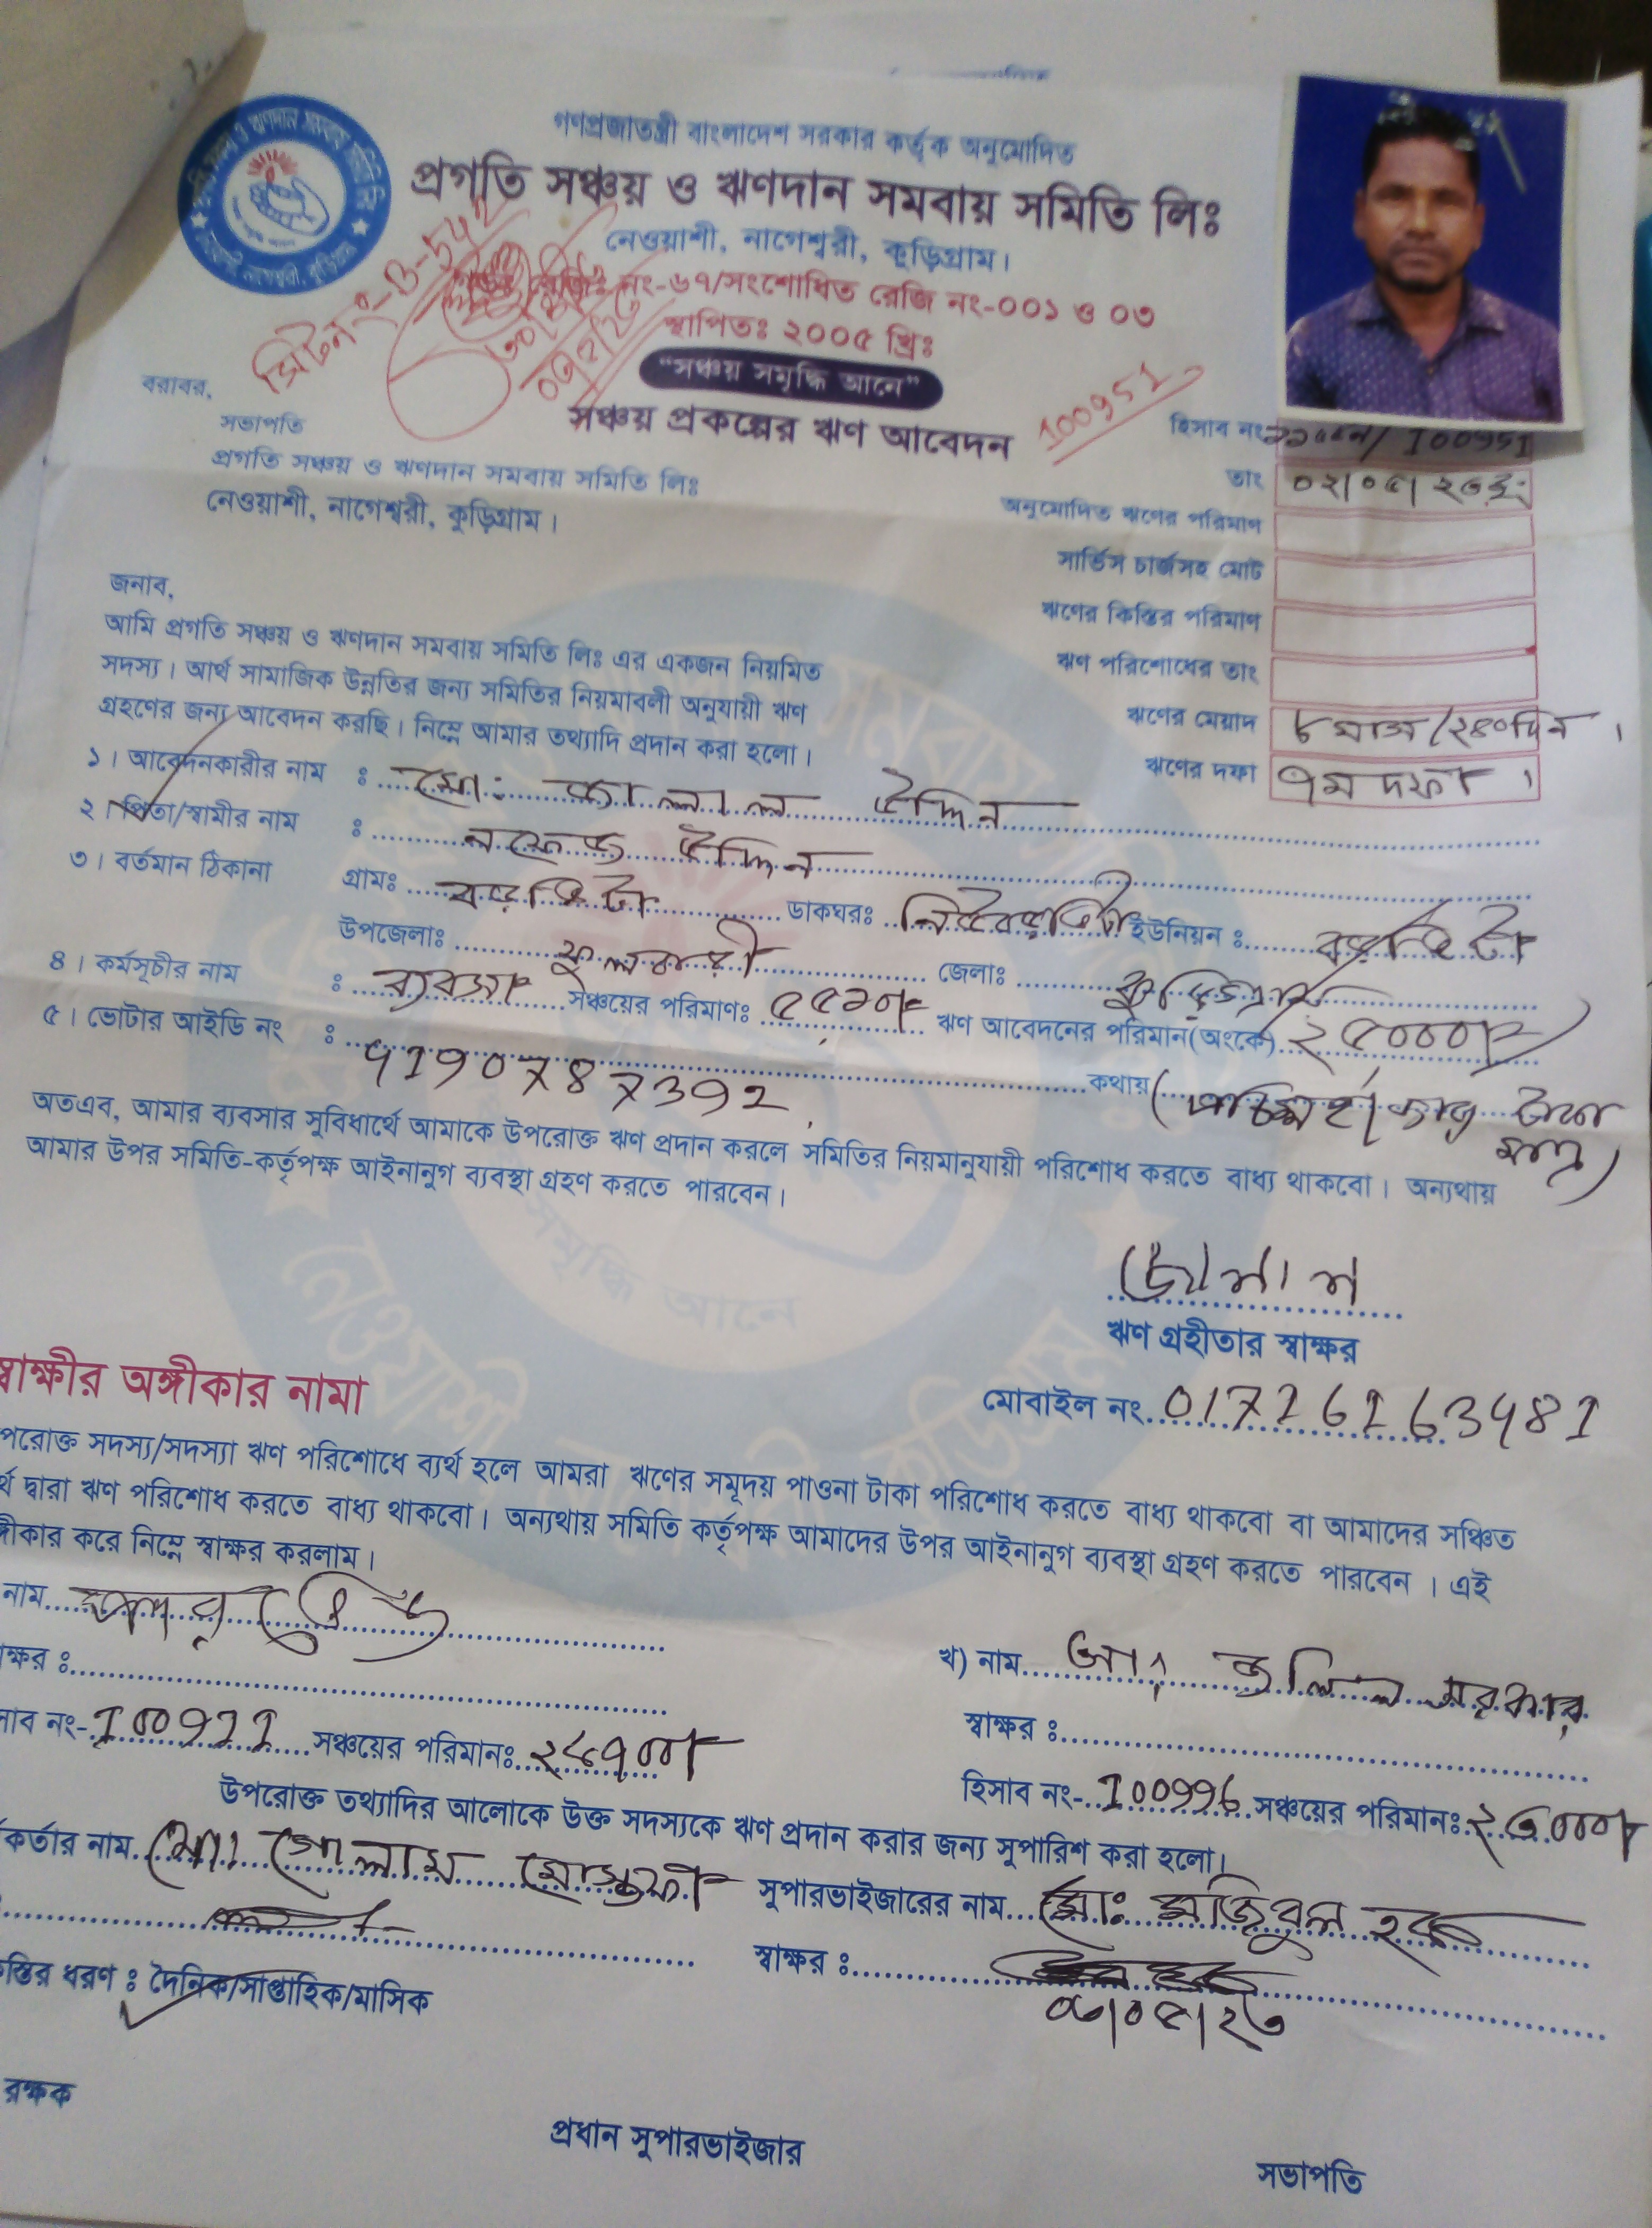 গণপ্রজাতন্ত্রী বাংলাদেশ সরকার কর্তৃক অনুমোদিত
প্রগতি সঞ্চয় ও ঋণদান সমবায় সমিতি লিঃ
নেওয়াশী, নাগেশ্বরী, কুড়িগ্রাম।
রেজিঃ নং-৬৭/সংশোধিত রেজি নং-০০১ ও ০৩
স্থাপিতঃ ২০০৫ খ্রিঃ
"সঞ্চয় সমৃদ্ধি আনে"
সঞ্চয় প্রকল্পের ঋণ আবেদন
100951
বরাবর,
সভাপতি
প্রগতি সঞ্চয় ও ঋণদান সমবায় সমিতি লিঃ
নেওয়াশী, নাগেশ্বরী, কুড়িগ্রাম।
হিসাব নং / 100951
তাং ০২/০৫/২৩ইং
অনুমোদিত ঋণের পরিমাণ
সার্ভিস চার্জসহ মোট
ঋণের কিস্তির পরিমাণ
ঋণ পরিশোধের তাং
ঋণের মেয়াদ ৮ মাস/২৪০দিন।
ঋণের দফা ৭ম দফা।
জনাব,
আমি প্রগতি সঞ্চয় ও ঋণদান সমবায় সমিতি লিঃ এর একজন নিয়মিত
সদস্য। আর্থ সামাজিক উন্নতির জন্য সমিতির নিয়মাবলী অনুযায়ী ঋণ
গ্রহণের জন্য আবেদন করছি। নিম্নে আমার তথ্যাদি প্রদান করা হলো।
১। আবেদনকারীর নাম : মো: জালাল উদ্দিন
২। পিতা/স্বামীর নাম : উদ্দিন
৩। বর্তমান ঠিকানা গ্রামঃ বড়ভিটা ডাকঘরঃ ইউনিয়ন : বড়ভিটা
উপজেলাঃ ফুলবাড়ী জেলাঃ কুড়িগ্রাম
৪। কর্মসূচীর নাম : ব্যবসা সঞ্চয়ের পরিমাণঃ ৫৫১০/= ঋণ আবেদনের পরিমান(অংকে) ২৫০০০/=
৫। ভোটার আইডি নং : 4190787392 কথায় (পঁচিশ হাজার টাকা মাত্র)
অতএব, আমার ব্যবসার সুবিধার্থে আমাকে উপরোক্ত ঋণ প্রদান করলে সমিতির নিয়মানুযায়ী পরিশোধ করতে বাধ্য থাকবো। অন্যথায়
আমার উপর সমিতি-কর্তৃপক্ষ আইনানুগ ব্যবস্থা গ্রহণ করতে পারবেন।
জালাল
ঋণ গ্রহীতার স্বাক্ষর
মোবাইল নং 01726163481
স্বাক্ষীর অঙ্গীকার নামা
পরোক্ত সদস্য/সদস্যা ঋণ পরিশোধে ব্যর্থ হলে আমরা ঋণের সমূদয় পাওনা টাকা পরিশোধ করতে বাধ্য থাকবো বা আমাদের সঞ্চিত
র্থ দ্বারা ঋণ পরিশোধ করতে বাধ্য থাকবো। অন্যথায় সমিতি কর্তৃপক্ষ আমাদের উপর আইনানুগ ব্যবস্থা গ্রহণ করতে পারবেন। এই
ঙ্গীকার করে নিম্নে স্বাক্ষর করলাম।
নাম
ক্ষর :
সাব নং- সঞ্চয়ের পরিমানঃ
খ) নাম আ: জলিল সরকার
স্বাক্ষর :
হিসাব নং- 100996 সঞ্চয়ের পরিমানঃ ২৩০০০/=
উপরোক্ত তথ্যাদির আলোকে উক্ত সদস্যকে ঋণ প্রদান করার জন্য সুপারিশ করা হলো।
কর্তার নাম মোঃ গোলাম মোস্তফা
সুপারভাইজারের নাম মোঃ মজিবুল হক
স্বাক্ষর :
স্তির ধরণ : দৈনিক/সাপ্তাহিক/মাসিক
রক্ষক
প্রধান সুপারভাইজার
সভাপতি